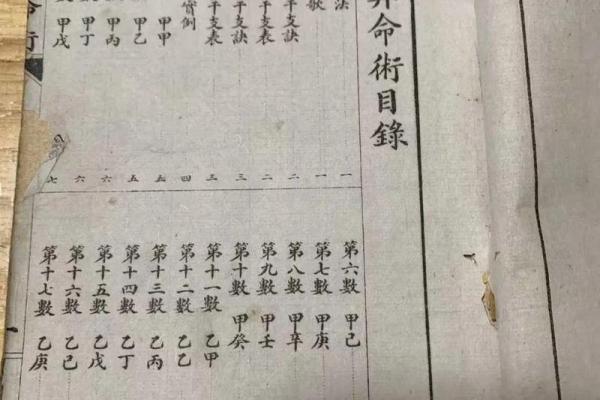 命術目錄
法 一
歌 一
干支訣 二
干支表 二
干支訣 三
干支表 三
實例 四
甲甲 五
甲乙 五
甲丙 六
甲丁 六
甲戊 七
第六數 甲己
第七數 甲庚
第八數 甲辛
第九數 甲壬
第十數 甲癸
第十一數 乙甲
第十二數 乙乙
第十三數 乙丙
第十四數 乙丁
第十五數 乙戊
第十六數 乙己
第十七數 乙庚